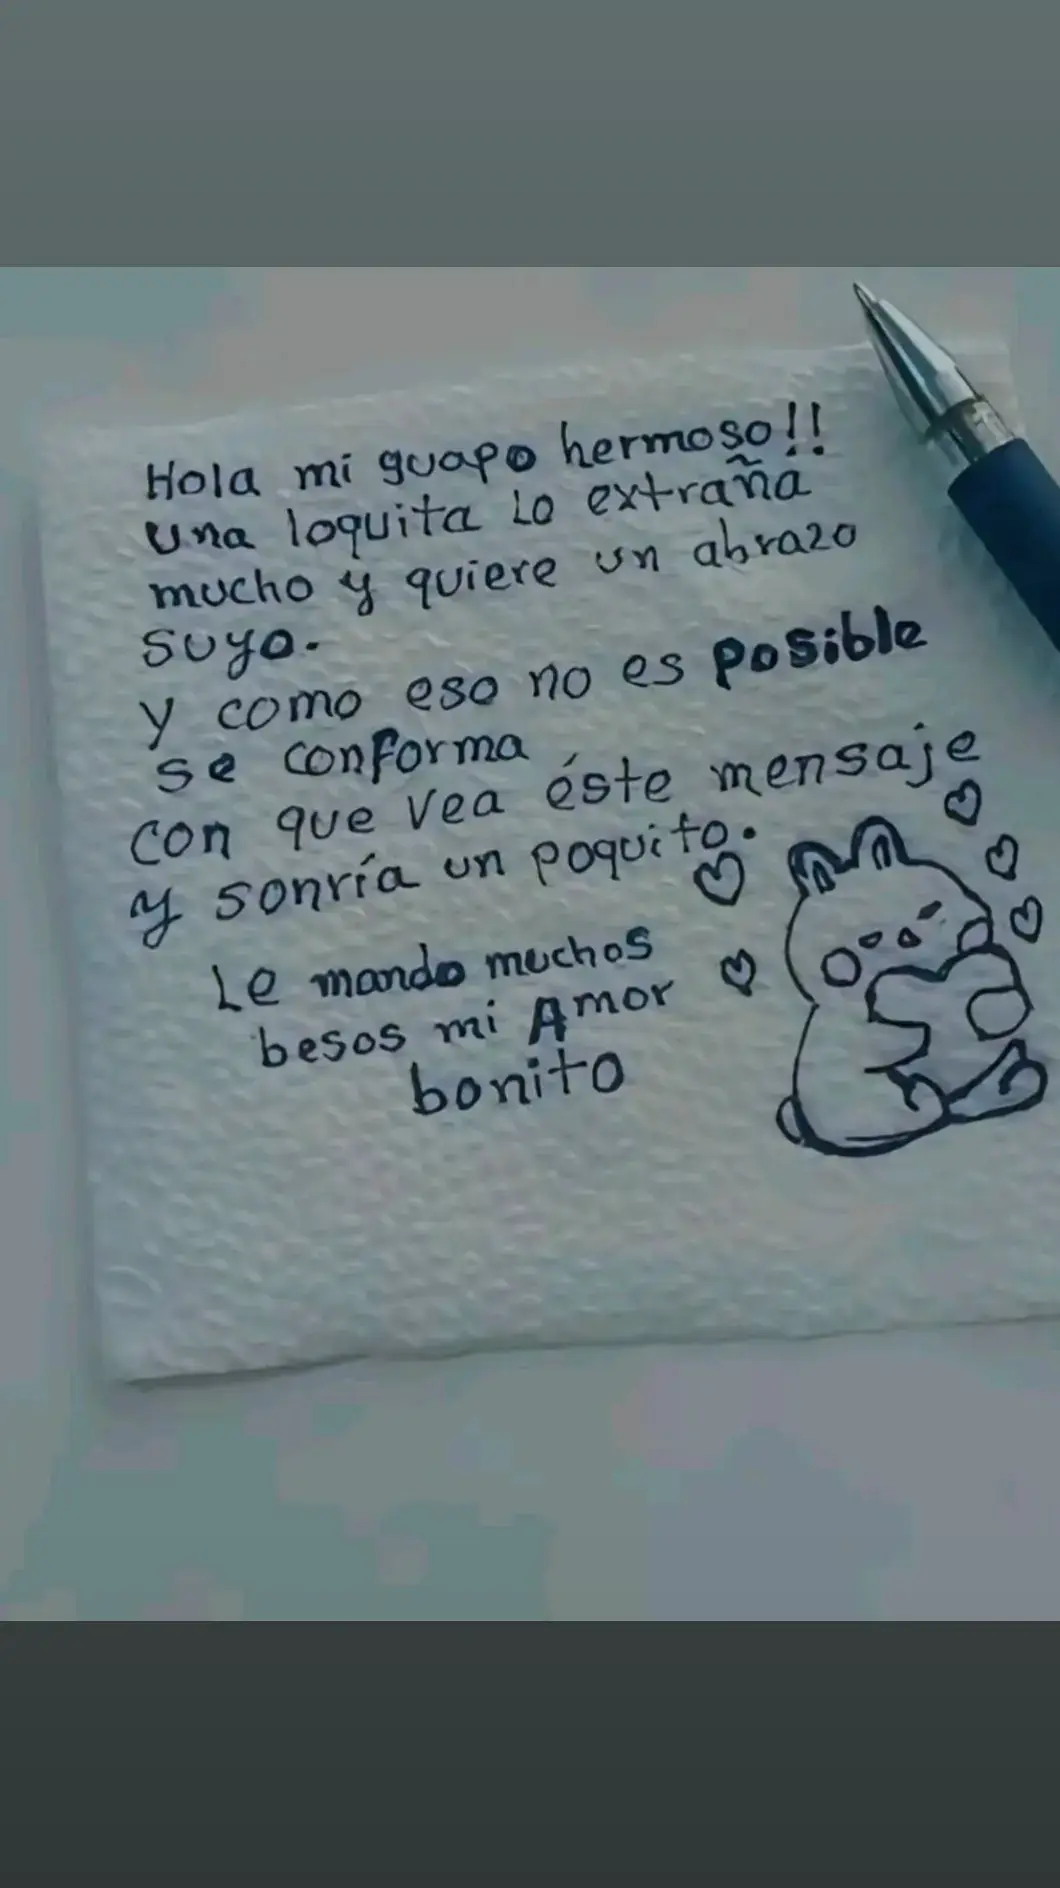 Hola mi guapo hermoso!!
una loquita Lo extraña
mucho y quiere un abrazo
suyo.
y como eso no es posible
se conforma
con que vea éste mensaje
y sonría un poquito.
Le mando muchos
besos mi Amor
bonito